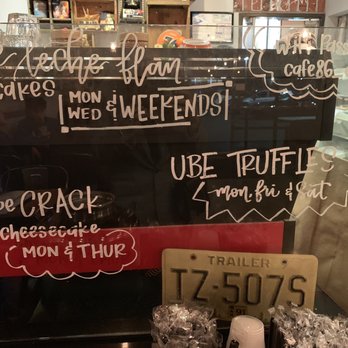 leche flan
cakes
MON
WED & WEEKENDS!
cafe86
UBE TRUFFLES
mon, fri & sat
CRACK
cheesecake
MON & THUR
TRAILER
TZ-507S